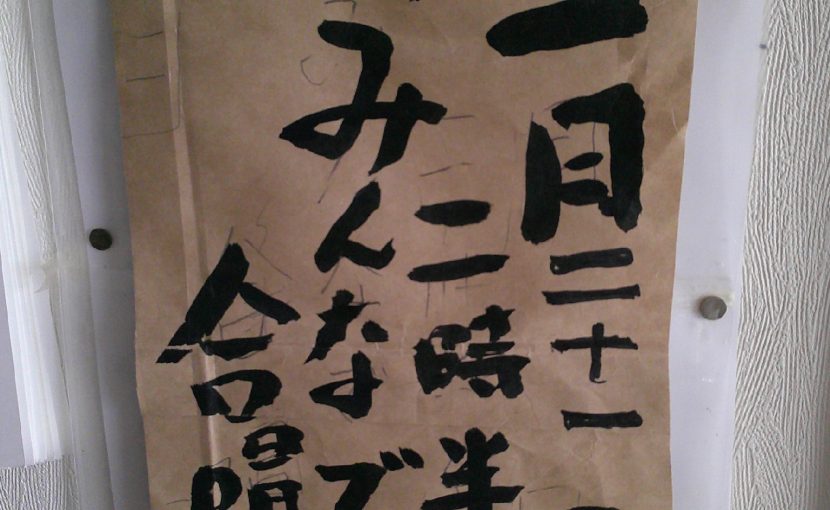 一月二十一
二時半
みんなで
合唱